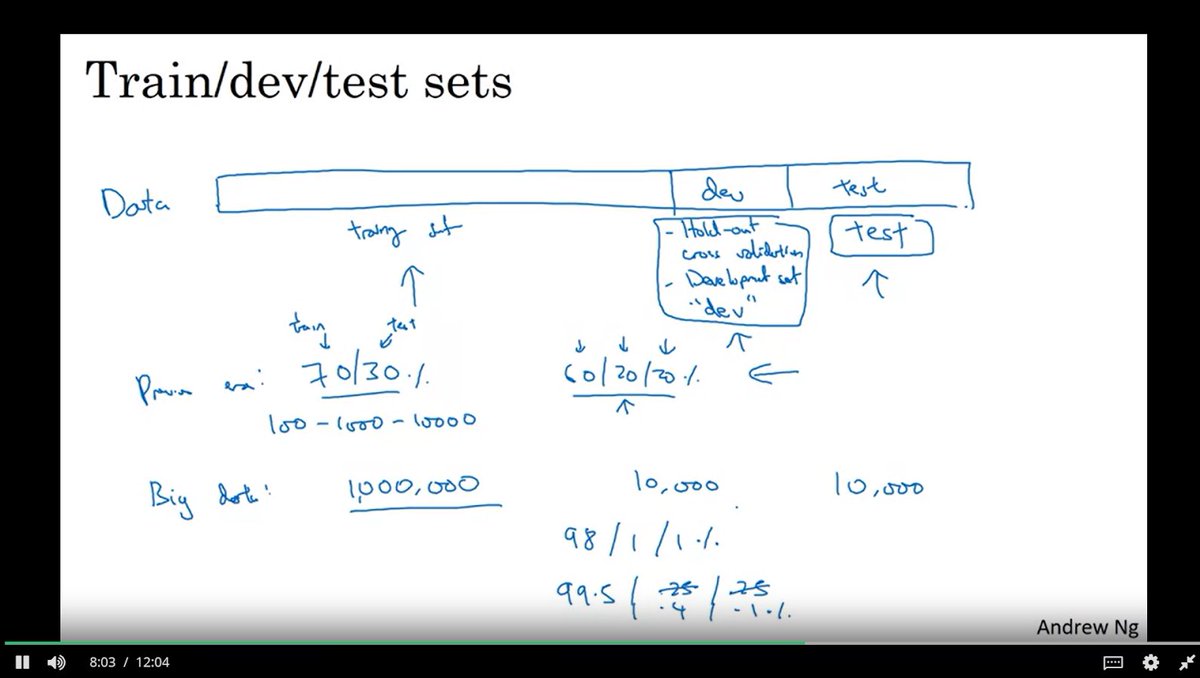 Train/dev/test sets
Data
dev
test
training set
- Hold-out
cross validation
- Development set
"dev"
test
train
test
70/30%
60/20/20%
Previous era:
100-1000-10000
Big data:
1,000,000
10,000
10,000
98/1/1%
99.5/.25/.25
.4 .1%
Andrew Ng
8:03 / 12:04